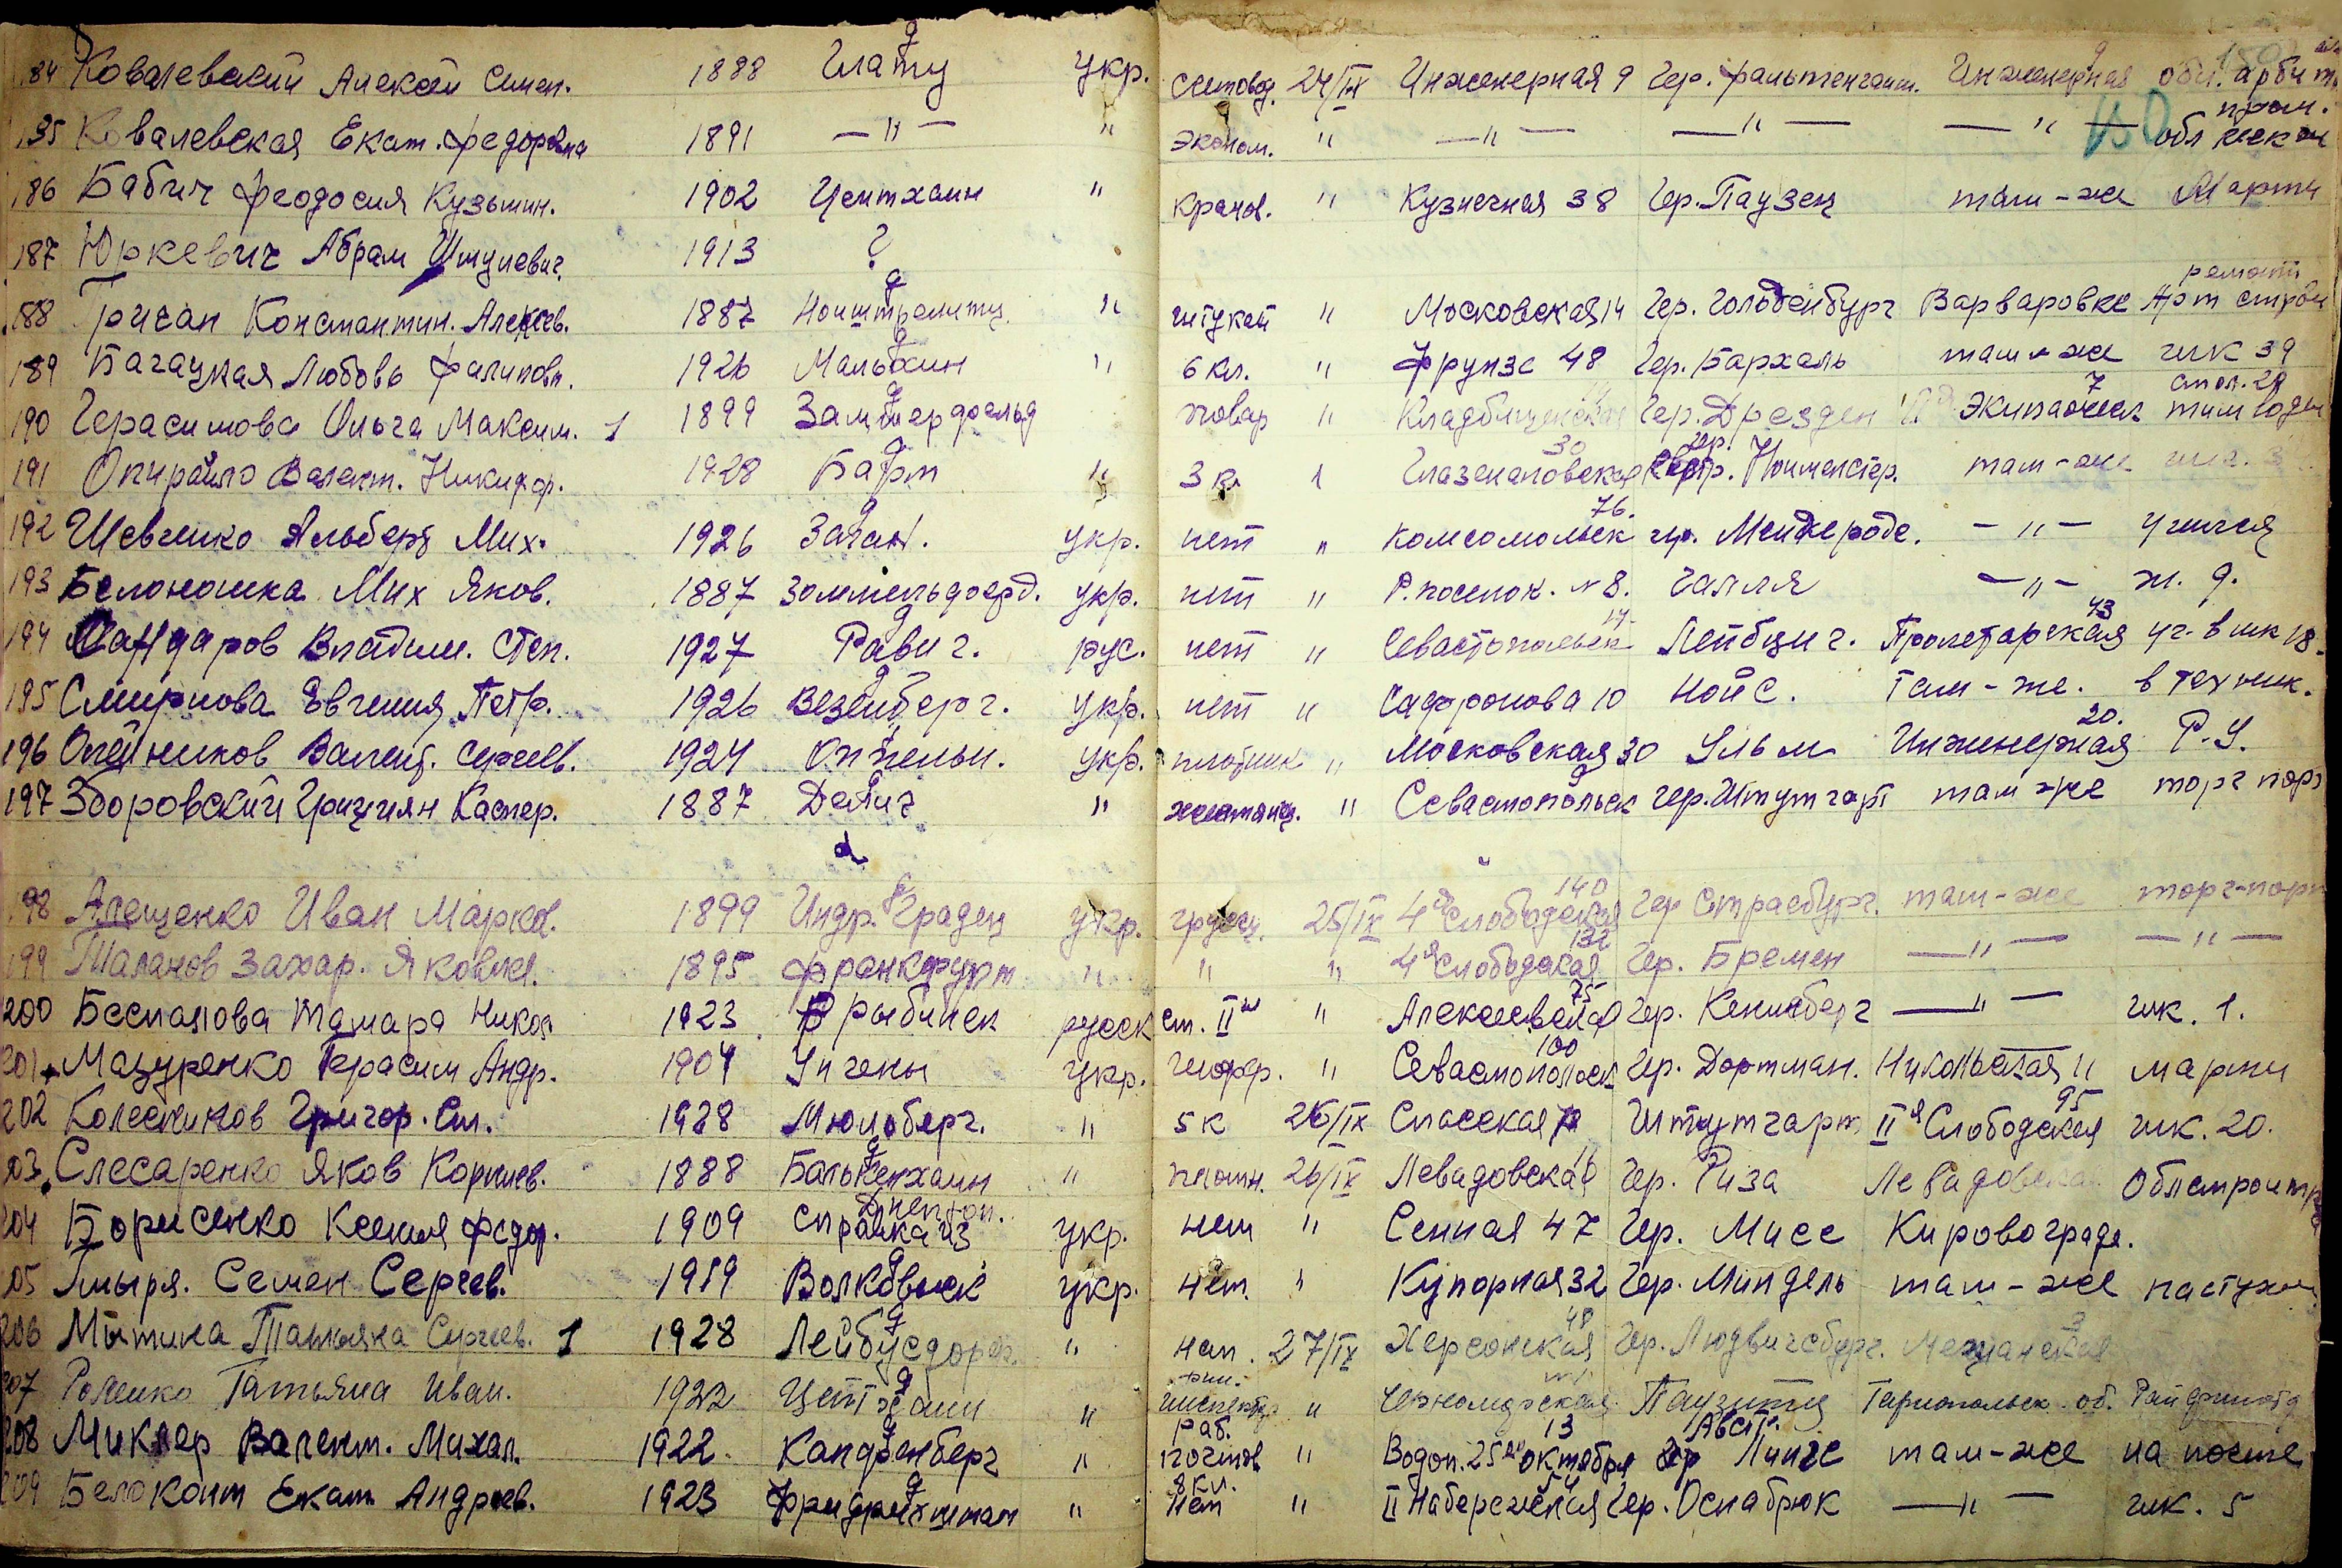 184 Ковалевский Алексей Семен. 1888 Глату укр. счетовод. 24/IX Инженерная 9 Гер. Инженерная 9 обл. арбитр
185 Ковалевская Екат. Федоровна 1891 —"— " эконом. " —"— —"— —"— обл
186 Бабич Феодосия Кузьмин. 1902 Цейтхаин " кранов. " Кузнечная 38 Гер. Паузец там-же Марти
187 Юркевич Абрам Шмулевич 1913 ?
188 Гричан Константин. Алексеев. 1887 " штукат " Московская 14 Гер. Гольденбург Варваровке ремонт
189 Багацкая Любовь Филиповн. 1926 Мальхин " 6 кл. " Фрунзе 48 Гер. Бархаль там-же шк 39
190 Герасимова Ольга Максим. 1 1899 Заммердфельд повар " Кладбищенская Гер. Дрезден Экипажеск 7
191 Валент. Никифор. 1928 Барт " 3 кл " Глазенаповская 30 гер. там-же
192 Шевченко Альберт Мих. 1926 Заган. укр. нет " Комсомольск 76. гер. —"— учился
193 Белоножка Мих Яков. 1887 укр. нет " Р. поселок. №8. Галля —"— ж. д.
194 Владим. Степ. 1927 Равич. рус. нет " Севастопольск 14 Лейбциг. Пролетарская 43 уч. в шк 18.
195 Смирнова Евгения Петр. 1926 Везенберг. укр. нет " Сафронова 10 Нойс. Там-же. в техник.
196 Олейников Валент. Сергеев. 1924 Оппельн. укр. плотник " Московская 30 Ульм Инженерная 20. Р.У.
197 Зборовский Каспер. 1887 " жестянщ. " Севастопольск 9 гер. Штутгарт там же торг порт
198 Алещенко Иван Марков. 1899 Индр. Граден укр. грузч. 25/IX 4я Слободская 140 Гер Страсбург. там-же торг-порт
199 Талачов Захар. Яковлев. 1895 Франкфурт " " " 4я Слободская 132 Гер. Бремен —"— —"—
200 Беспалова Тамара Никол 1923 Рыбинск русск ст. II " Алексеевская 75 Гер. Кенигсберг —"— шк. 1.
201 Мазуренко Герасим Андр. 1904 укр. шофф. " Севастопольск 100 Гер. Дортман. Никольская 11 марти
202 Колесников Григор. См. 1928 Мюльберг. " 5 к 26/IX Спасская Штутгарт II я Слободская 95 шк. 20.
203 Слесаренко Яков Корниев. 1888 Балькенхаин " плотн. 26/IX Левадовская 16 Гер. Риза Левадовская Облстройтр
204 Борисенко Ксения Федор. 1909 справка из Днепроп. укр. нет " Сенная 47 Гер. Мисе Кировоград.
205 Гмыря. Семен Сергеев. 1919 Волковыск укр. нет. " Купорная 32 Гер. Миндель там-же пастухом
206 Мытика Татьяна Сергеев. 1 1928 Лейбусдорф. " нет. 27/IX Херсонская 48 Гер. Людвигсбург. Мещанская 3
207 Роленко Татьяна Иван. 1922 Цейтхаин " фин. инспектор " Черноморская Паузитц Тарнопольск. об. Райфинотд
208 Миклер Валент. Михал. 1922. Капфенберг " раб. почтов " Водоп. 25 октября 13 Австр. Линце там-же на почте
209 Белоконт Екат. Андреев. 1923 " 8 кл. нет " II Набережная 54 Гер. Оснабрюк —"— шк. 5